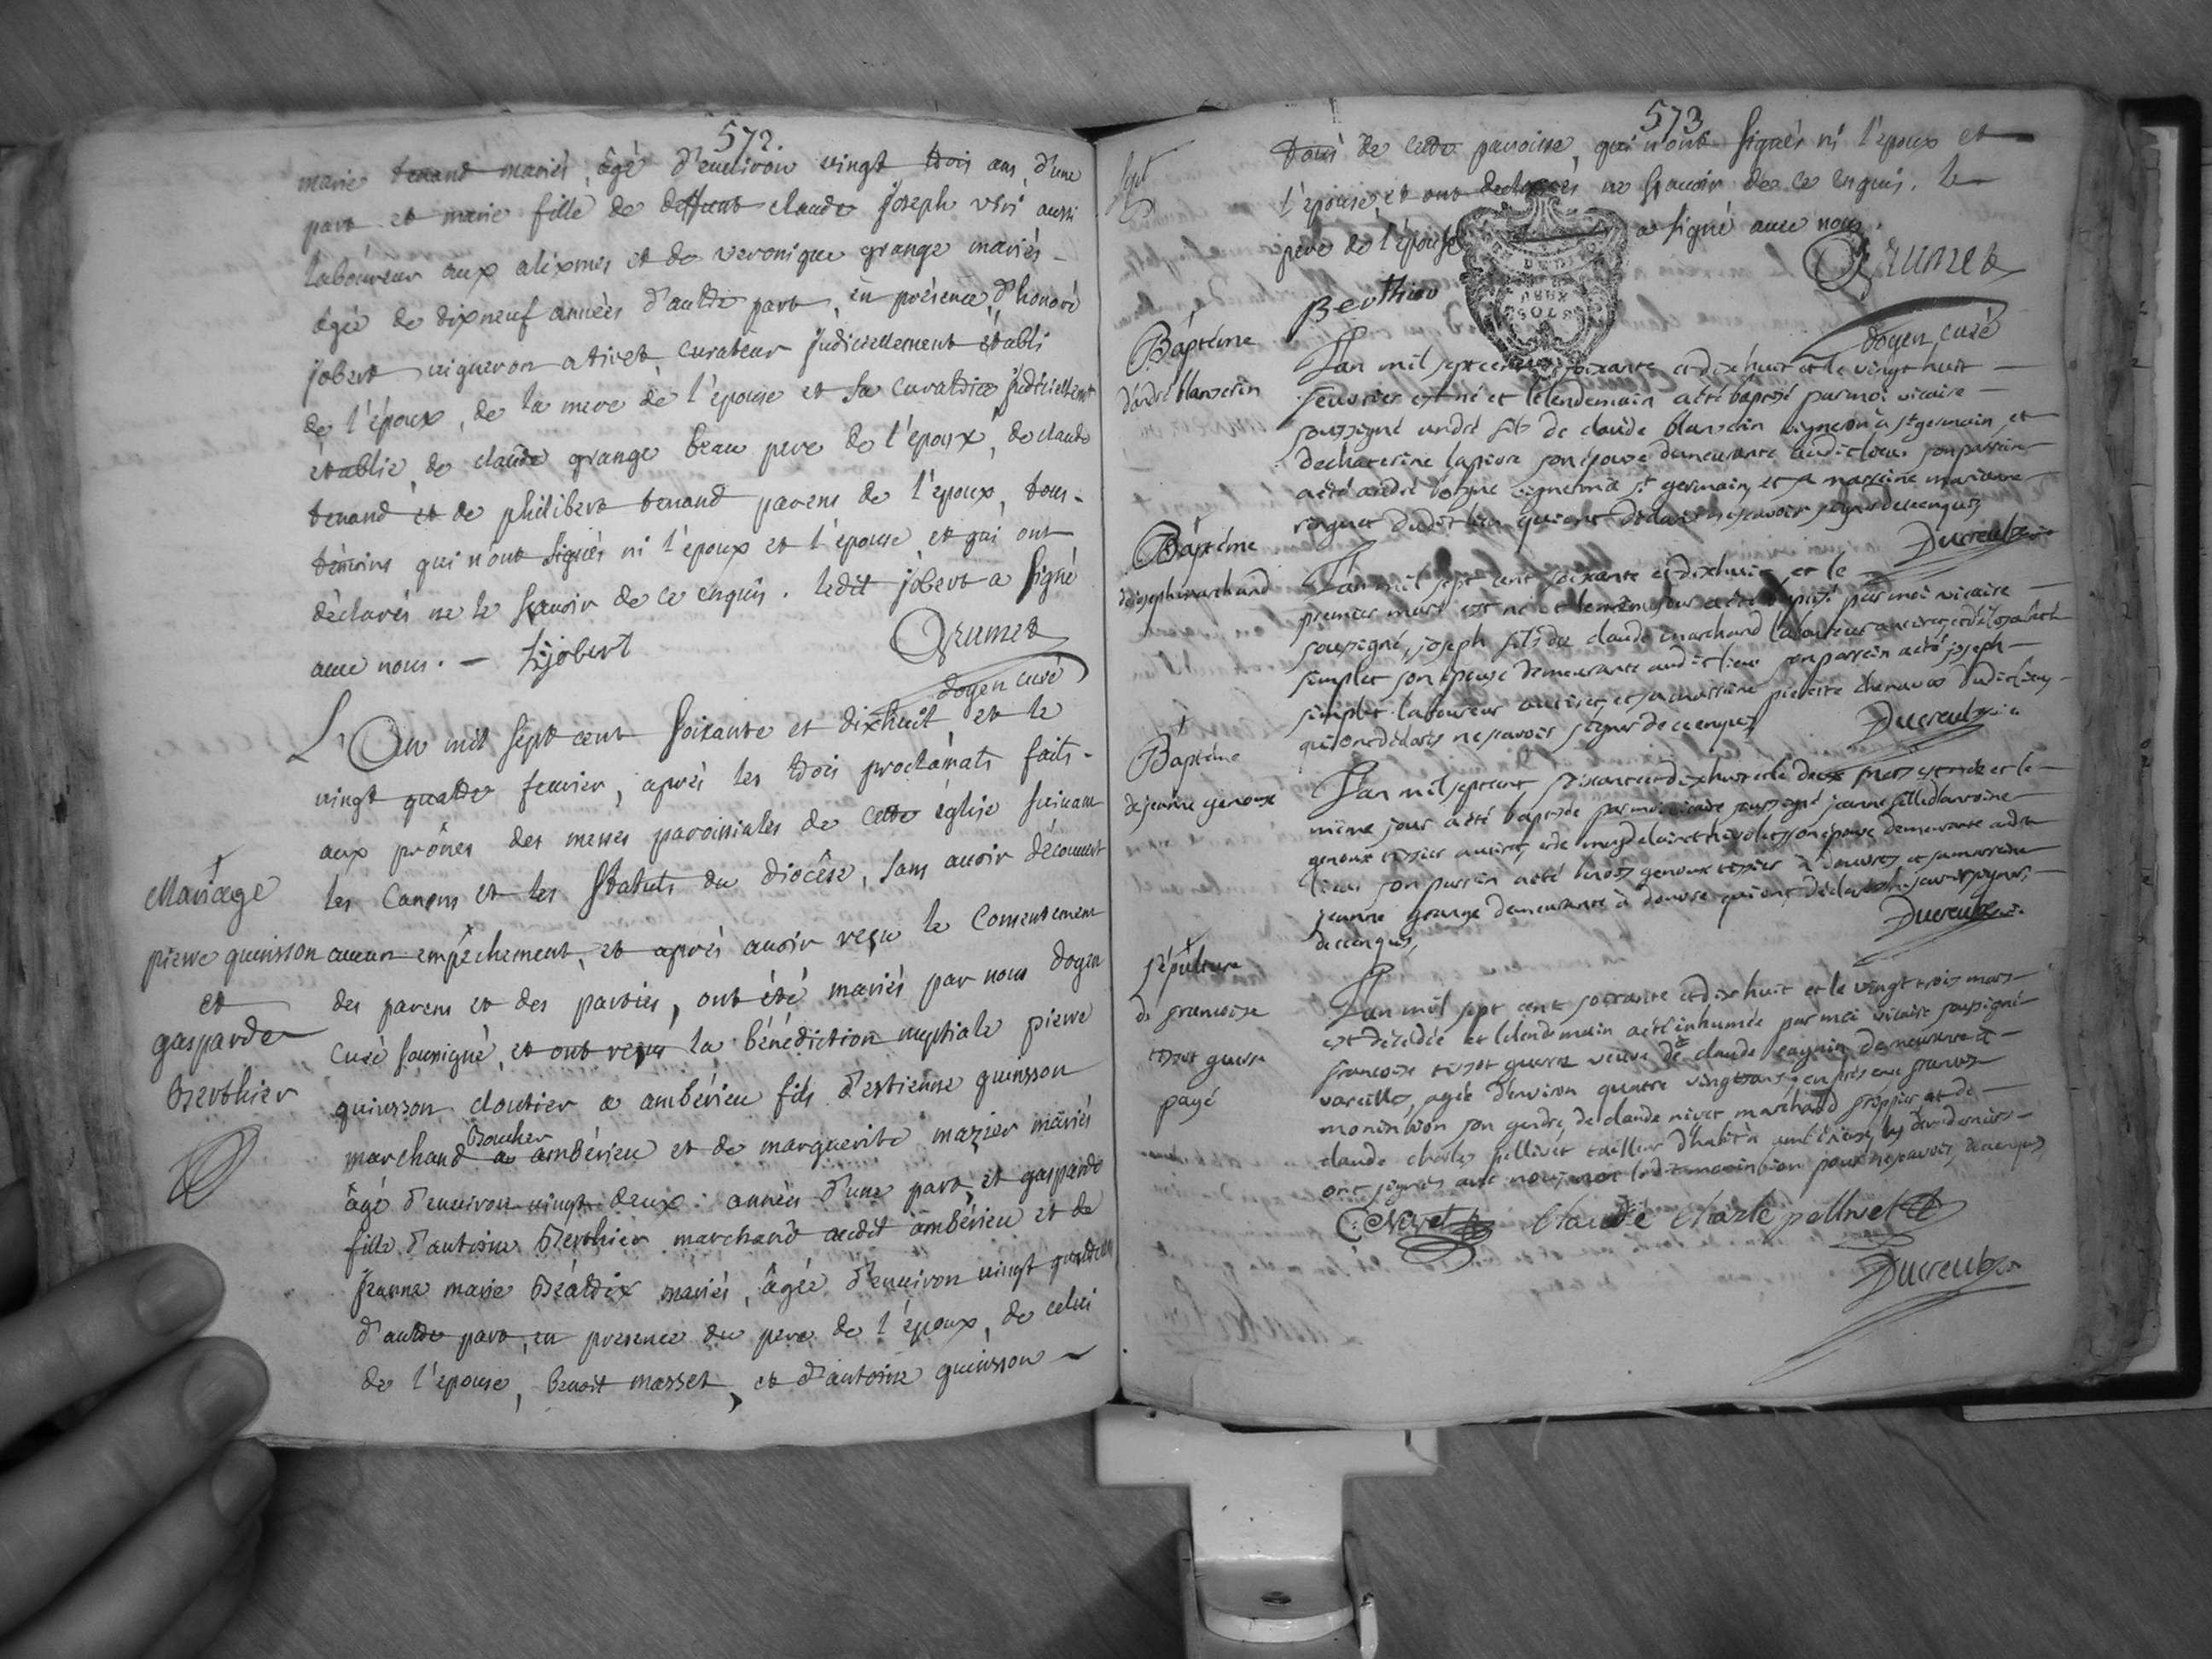 572.
marie tenand mariés, âgé d'environ vingt trois ans, d'une
part et marie fille de deffunt claude joseph vivi aussi
laboureur aux aléxmes et de veronique grange mariés
agée de dixneuf années d'autre part, en présence d'honoré
jobert vigneron a tiret, curateur judiciellement établi
de l'époux, de la mere de l'épouse et sa curatrice judiciellement
établie, de claude grange beau pere de l'époux, de claude
tenand et de philibert tenand parens de l'epoux, tous
témoins qui n'ont signés ni l'époux et l'épouse, et qui ont
déclarés ne le sçavoir de ce enquis. ledit jobert a signé
avec nous. — h jobert
Grumet
doyen curé
L'An mil sept cent soixante et dixhuit et le
vingt quatre fevrier, après les trois proclamats faits
aux prônes des messes paroissiales de cette église suivant
les canons et les statuts du diocèse, sans avoir découvert
Mariage
pierre guinsson
et
gasparde
Berthier
aucun empêchement, et après avoir reçu le consentement
des parens et des parties, ont été mariés par nous doyen
curé soussigné, et ont reçu la bénédiction nuptiale pierre
guinsson cloutier a ambérieu fils d'estienne guinsson
marchand Boucher a ambérieu et de marguerite mazier mariés
âgé d'environ vingt deux années d'une part, et gasparde
fille d'antoine Berthier marchand audit ambérieu et de
jeanne marie Béatrix mariés, âgée d'environ vingt quatre
d'autre part, en presence du pere de l'époux, de celui
de l'epouse, benoit masset, et d'antoine guinsson
573
tous de cette paroisse, qui n'ont signés ni l'epoux et
l'épouse, et ont declarés ne sçavoir de ce enquis. le
pere de l'épouse a signé avec nous.
Berthier
Grumet
doyen curé
Baptême
d'andré blanchin
L'an mil sept cent soixante et dixhuit et le vingt huit
fevrier est né et le lendemain a été baptisé par moi vicaire
soussigné andré fils de claude blanchin vigneron à st germain et
de chaterine lapierre son épouse demeurante audit lieu son parrain
a été andré vigneron à st germain, et sa marraine marianne
dudit lieu qui ont déclaré ne scavoir signer de ce enquis
Ducreux vic
Baptême
de joseph marchand
L'an mil sept cent soixante et dixhuit et le
premier mars est né et le même jour a été baptisé par moi vicaire
soussigné, joseph fils de claude marchand laboureur et d'élisabeth
simplet son épouse demeurante audit lieu son parrain a été joseph
simplet laboureur et sa marraine pierrette dudit lieu
qui ont déclarés ne scavoir signer de ce enquis
Ducreux vic
Baptême
de jeanne genoux
L'an mil sept cent soixante et dixhuit et le deux mars est née et le
même jour a été baptisée par moi vicaire soussigné jeanne fille d'antoine
genoux tissier son épouse demeurante audit
lieu son parrain a été genoux tissier à douvres et sa marraine
jeanne grange demeurante à douvre qui ont déclarés ne scavoir signer
de ce enquis,
Ducreux vic.
Sépulture
de francoise
tissot guerre
payé
L'an mil sept cent soixante et dix huit et le vingt trois mars
est décédée et le lendemain a été inhumée par moi vicaire soussigné
francoise tissot guerre veuve de claude cagnin demeurante à
vareilles, agée d'environ quatre vingt ans, en présence francois
monin bion son gendre, de claude nivet marchand frippier et de
claude charles pellivet tailleur d'habit à ambérieux, les deux derniers
ont signés avec nous, non ledit monin bion pour ne scavoir, de ce enquis
C. Nivet Claude charle pellivet
Ducreux vic